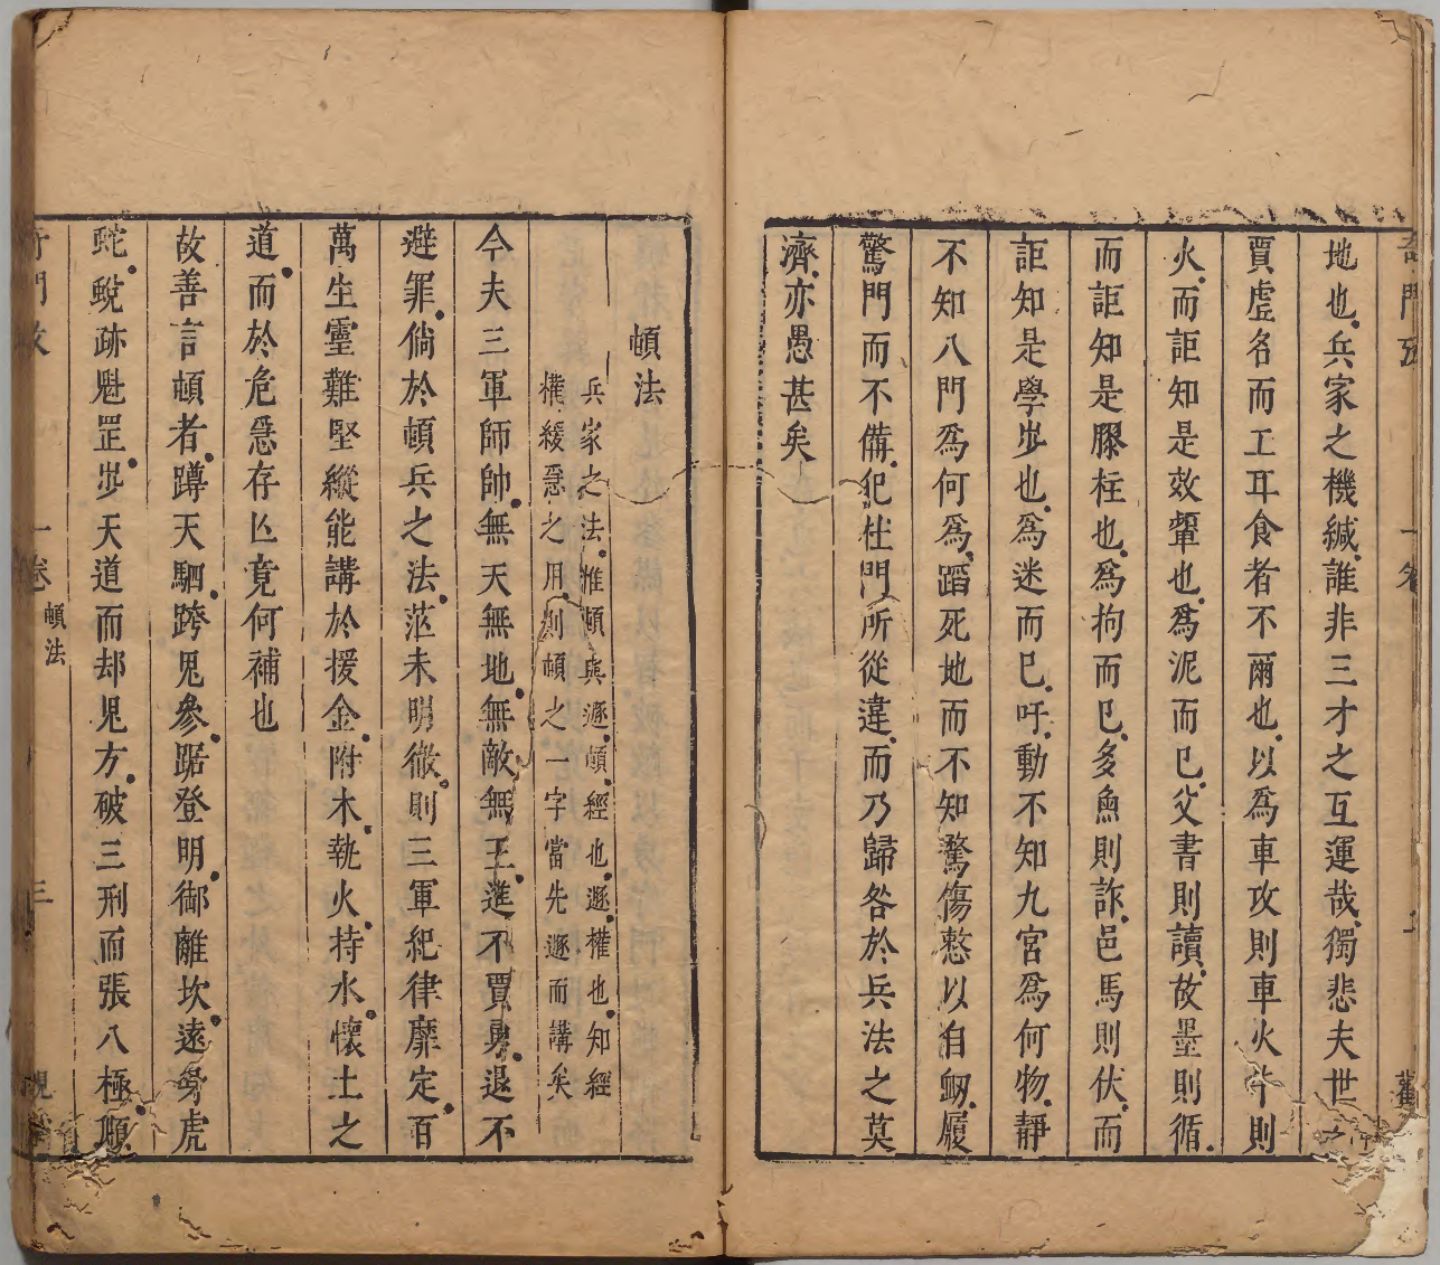 地也兵家之機緘誰非三才之互運哉獨悲夫世之
賈虛名而工耳食者不爾也以爲車攻則車火牛則
火而詎知是效顰也爲泥而已父書則讀故墨則循
而詎知是膠柱也爲拘而已多魚則詐邑馬則伏而
詎知是學步也爲迷而已吁動不知九宮爲何物靜
不知八門爲何爲蹈死地而不知驚傷憗以自衂履
驚門而不備犯杜門所從違而乃歸咎於兵法之莫
濟亦愚甚矣
頓法
兵家之法惟頓與遯頓經也遯權也知經
權緩急之用則頓之一字當先遯而講矣
今夫三軍師帥無天無地無敵無王進不賈勇退不
避罪倘於頓兵之法茫未明徹則三軍紀律靡定百
萬生靈難堅縱能講於援金附木執火持水懷土之
道而於危急存亾竟何補也
故善言頓者蹲天駟跨鬼參踞登明御離坎遠旁虎
蛇蛻跡魁罡步天道而却鬼方破三刑而張八極順
一卷 頓法
三